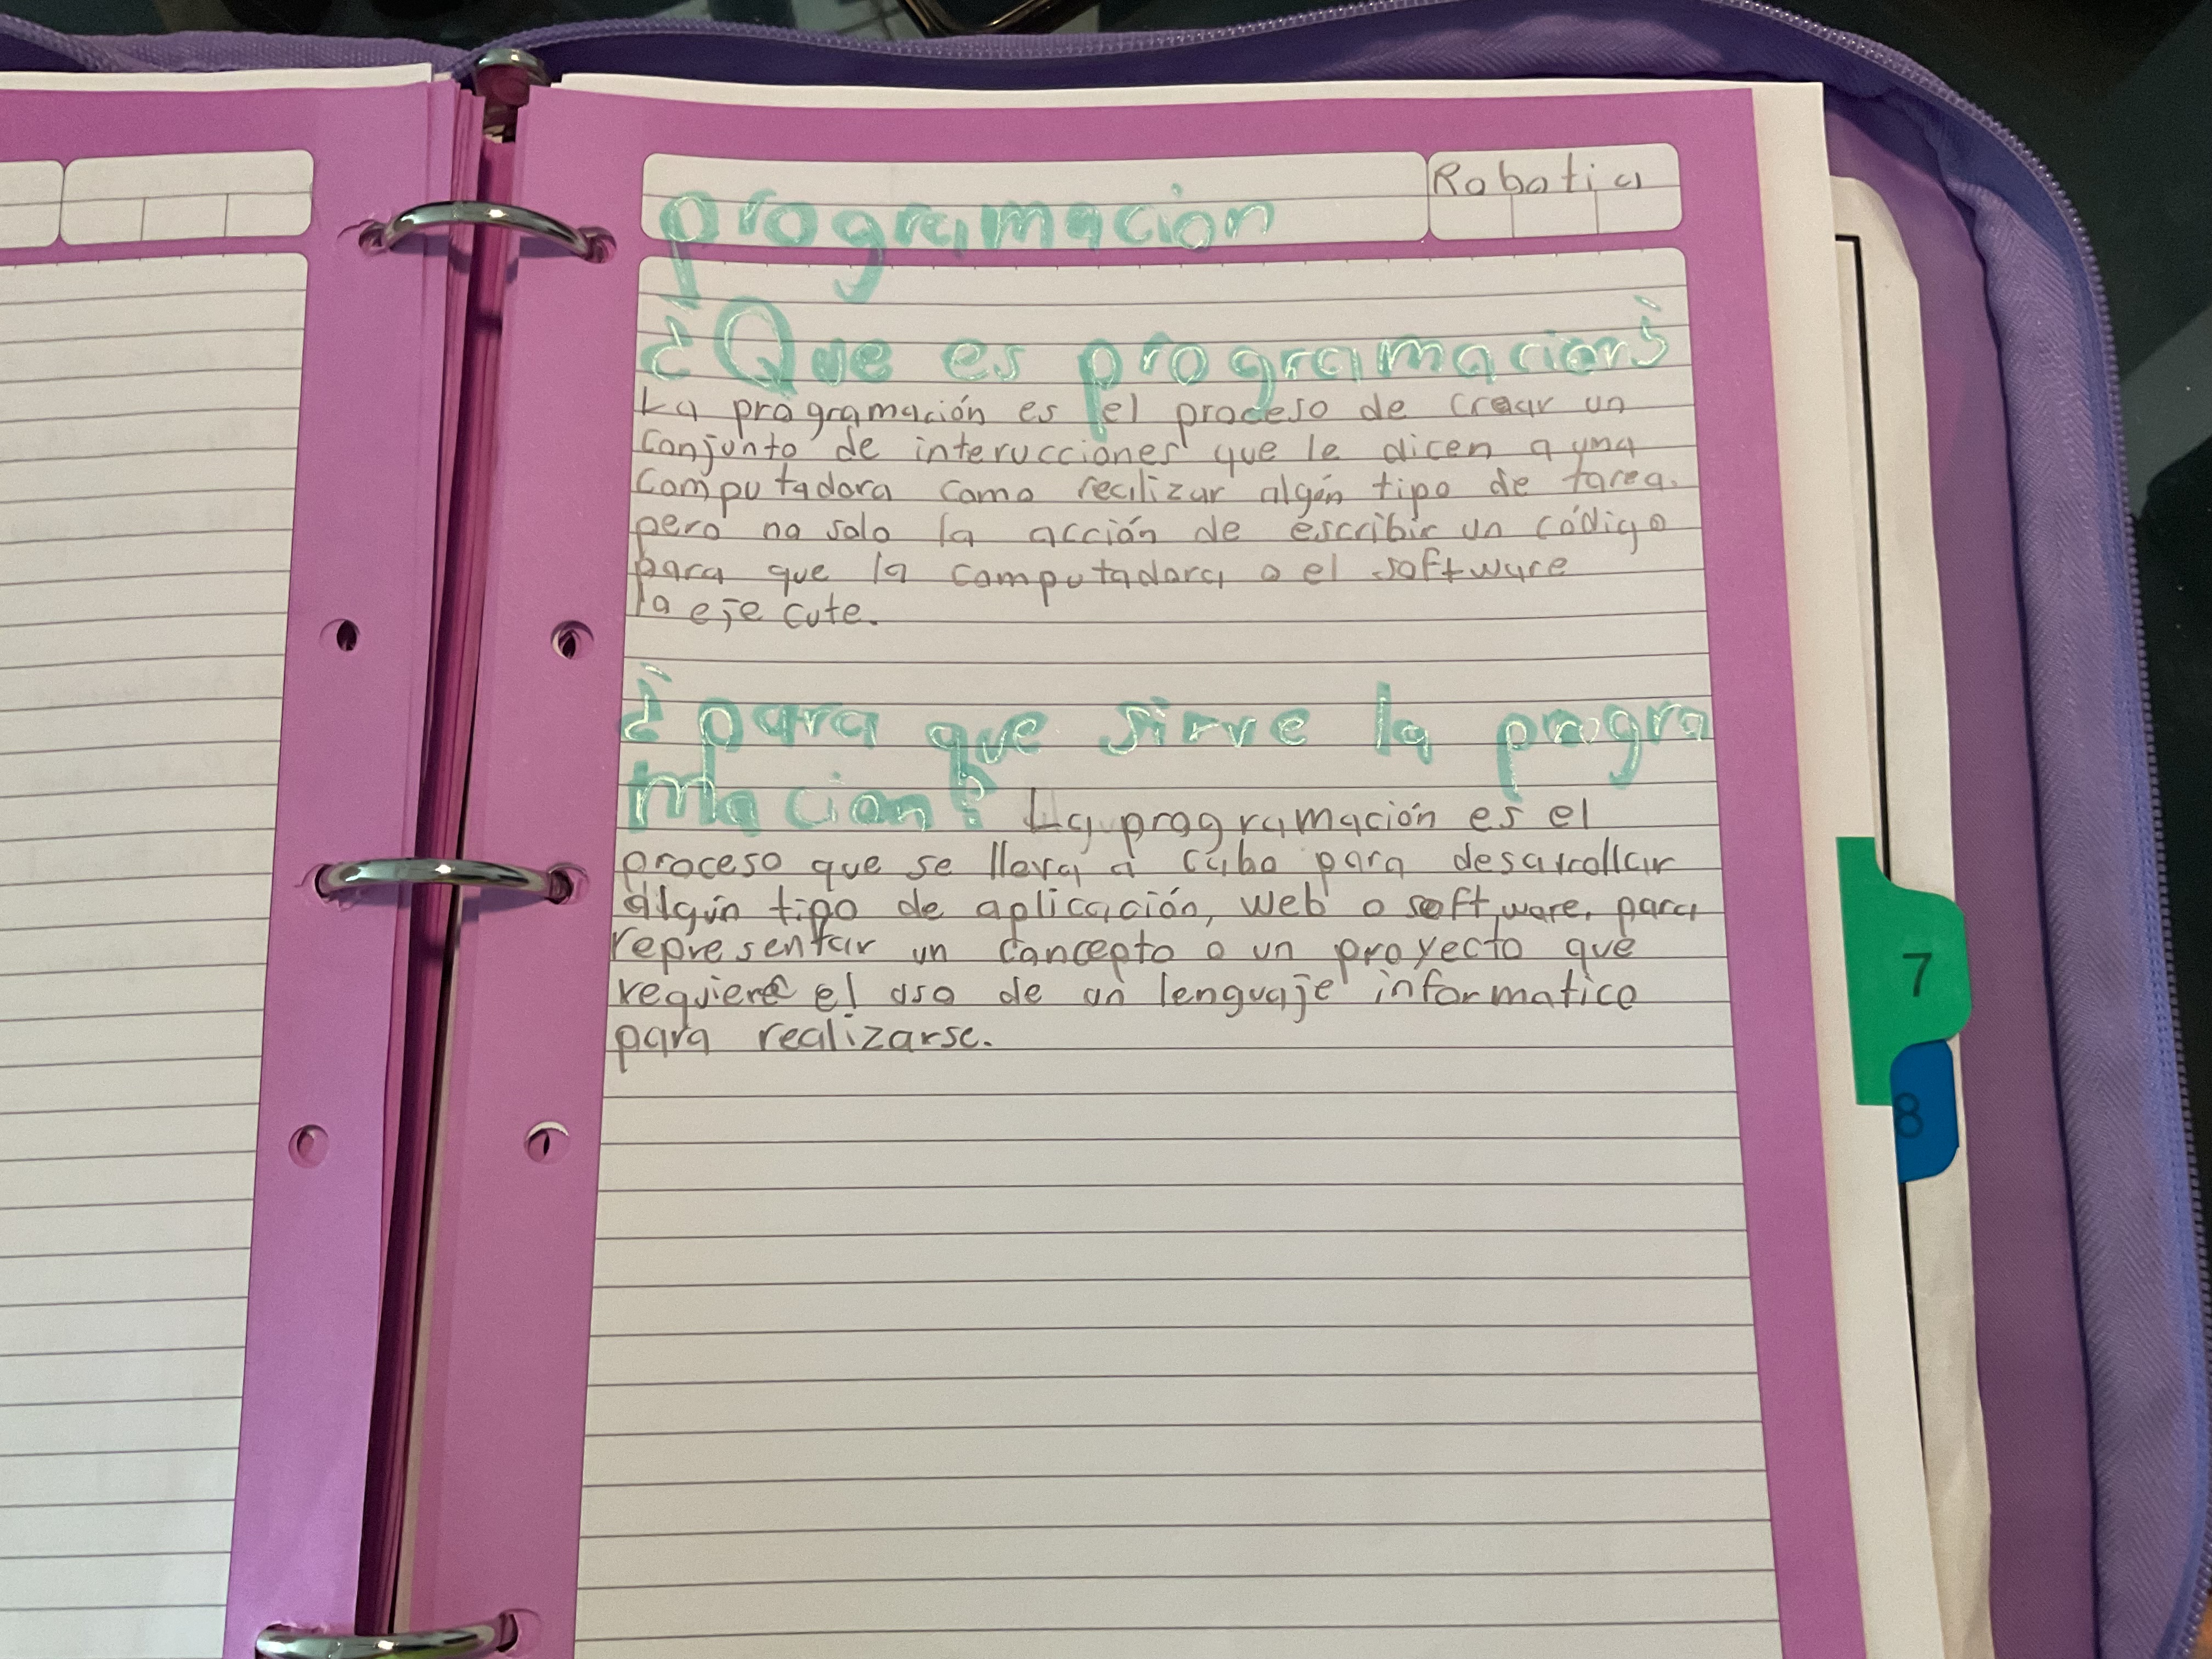 Robotica
programacion
¿Que es programacion?
La programación es el proceso de crear un
conjunto de interucciones que le dicen a una
computadora como realizar algún tipo de tarea.
pero no solo la acción de escribir un código
para que la computadora o el software
la ejecute.
¿para que sirve la progra
macion? La programación es el
proceso que se lleva a cabo para desarrollar
algún tipo de aplicación, web o software, para
representar un concepto o un proyecto que
requiere el uso de un lenguaje informatico
para realizarse.
7
8